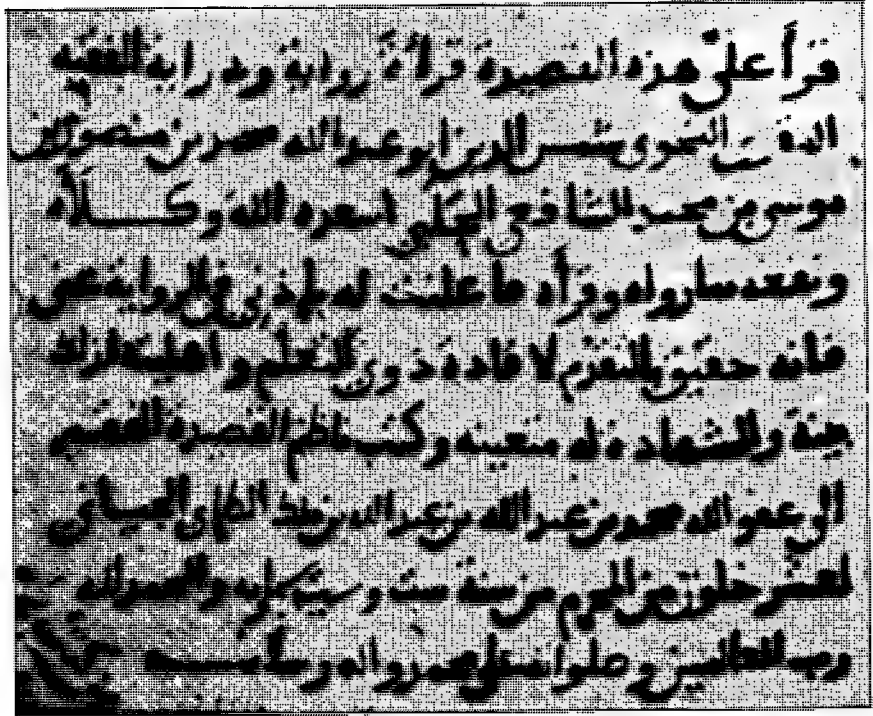 قرأ علي هذه القصيدة قراءة رواية ودراية الفقيه
النحوي شمس الدين ابو عبد الله محمد بن منصور بن
موسى بن محمد الشافعي الحلبي اسعده الله وكلأه
ونفعه بما رواه وقرأه ما علمت له باذني في الرواية عني
فانه حقيق بالتقدم لافادة ذوي التعلم و اهليته لذلك
بينة والشهادة له متعينه وكتب ناظم القصيدة الفقير
الى عفو الله محمد بن عبد الله بن عبد الله بن مالك الطائي الجياني
لعشر خلون من المحرم من سنة ست وستين وستمايه والحمد لله
رب العالمين وصلواته على محمد واله وسلامـــه